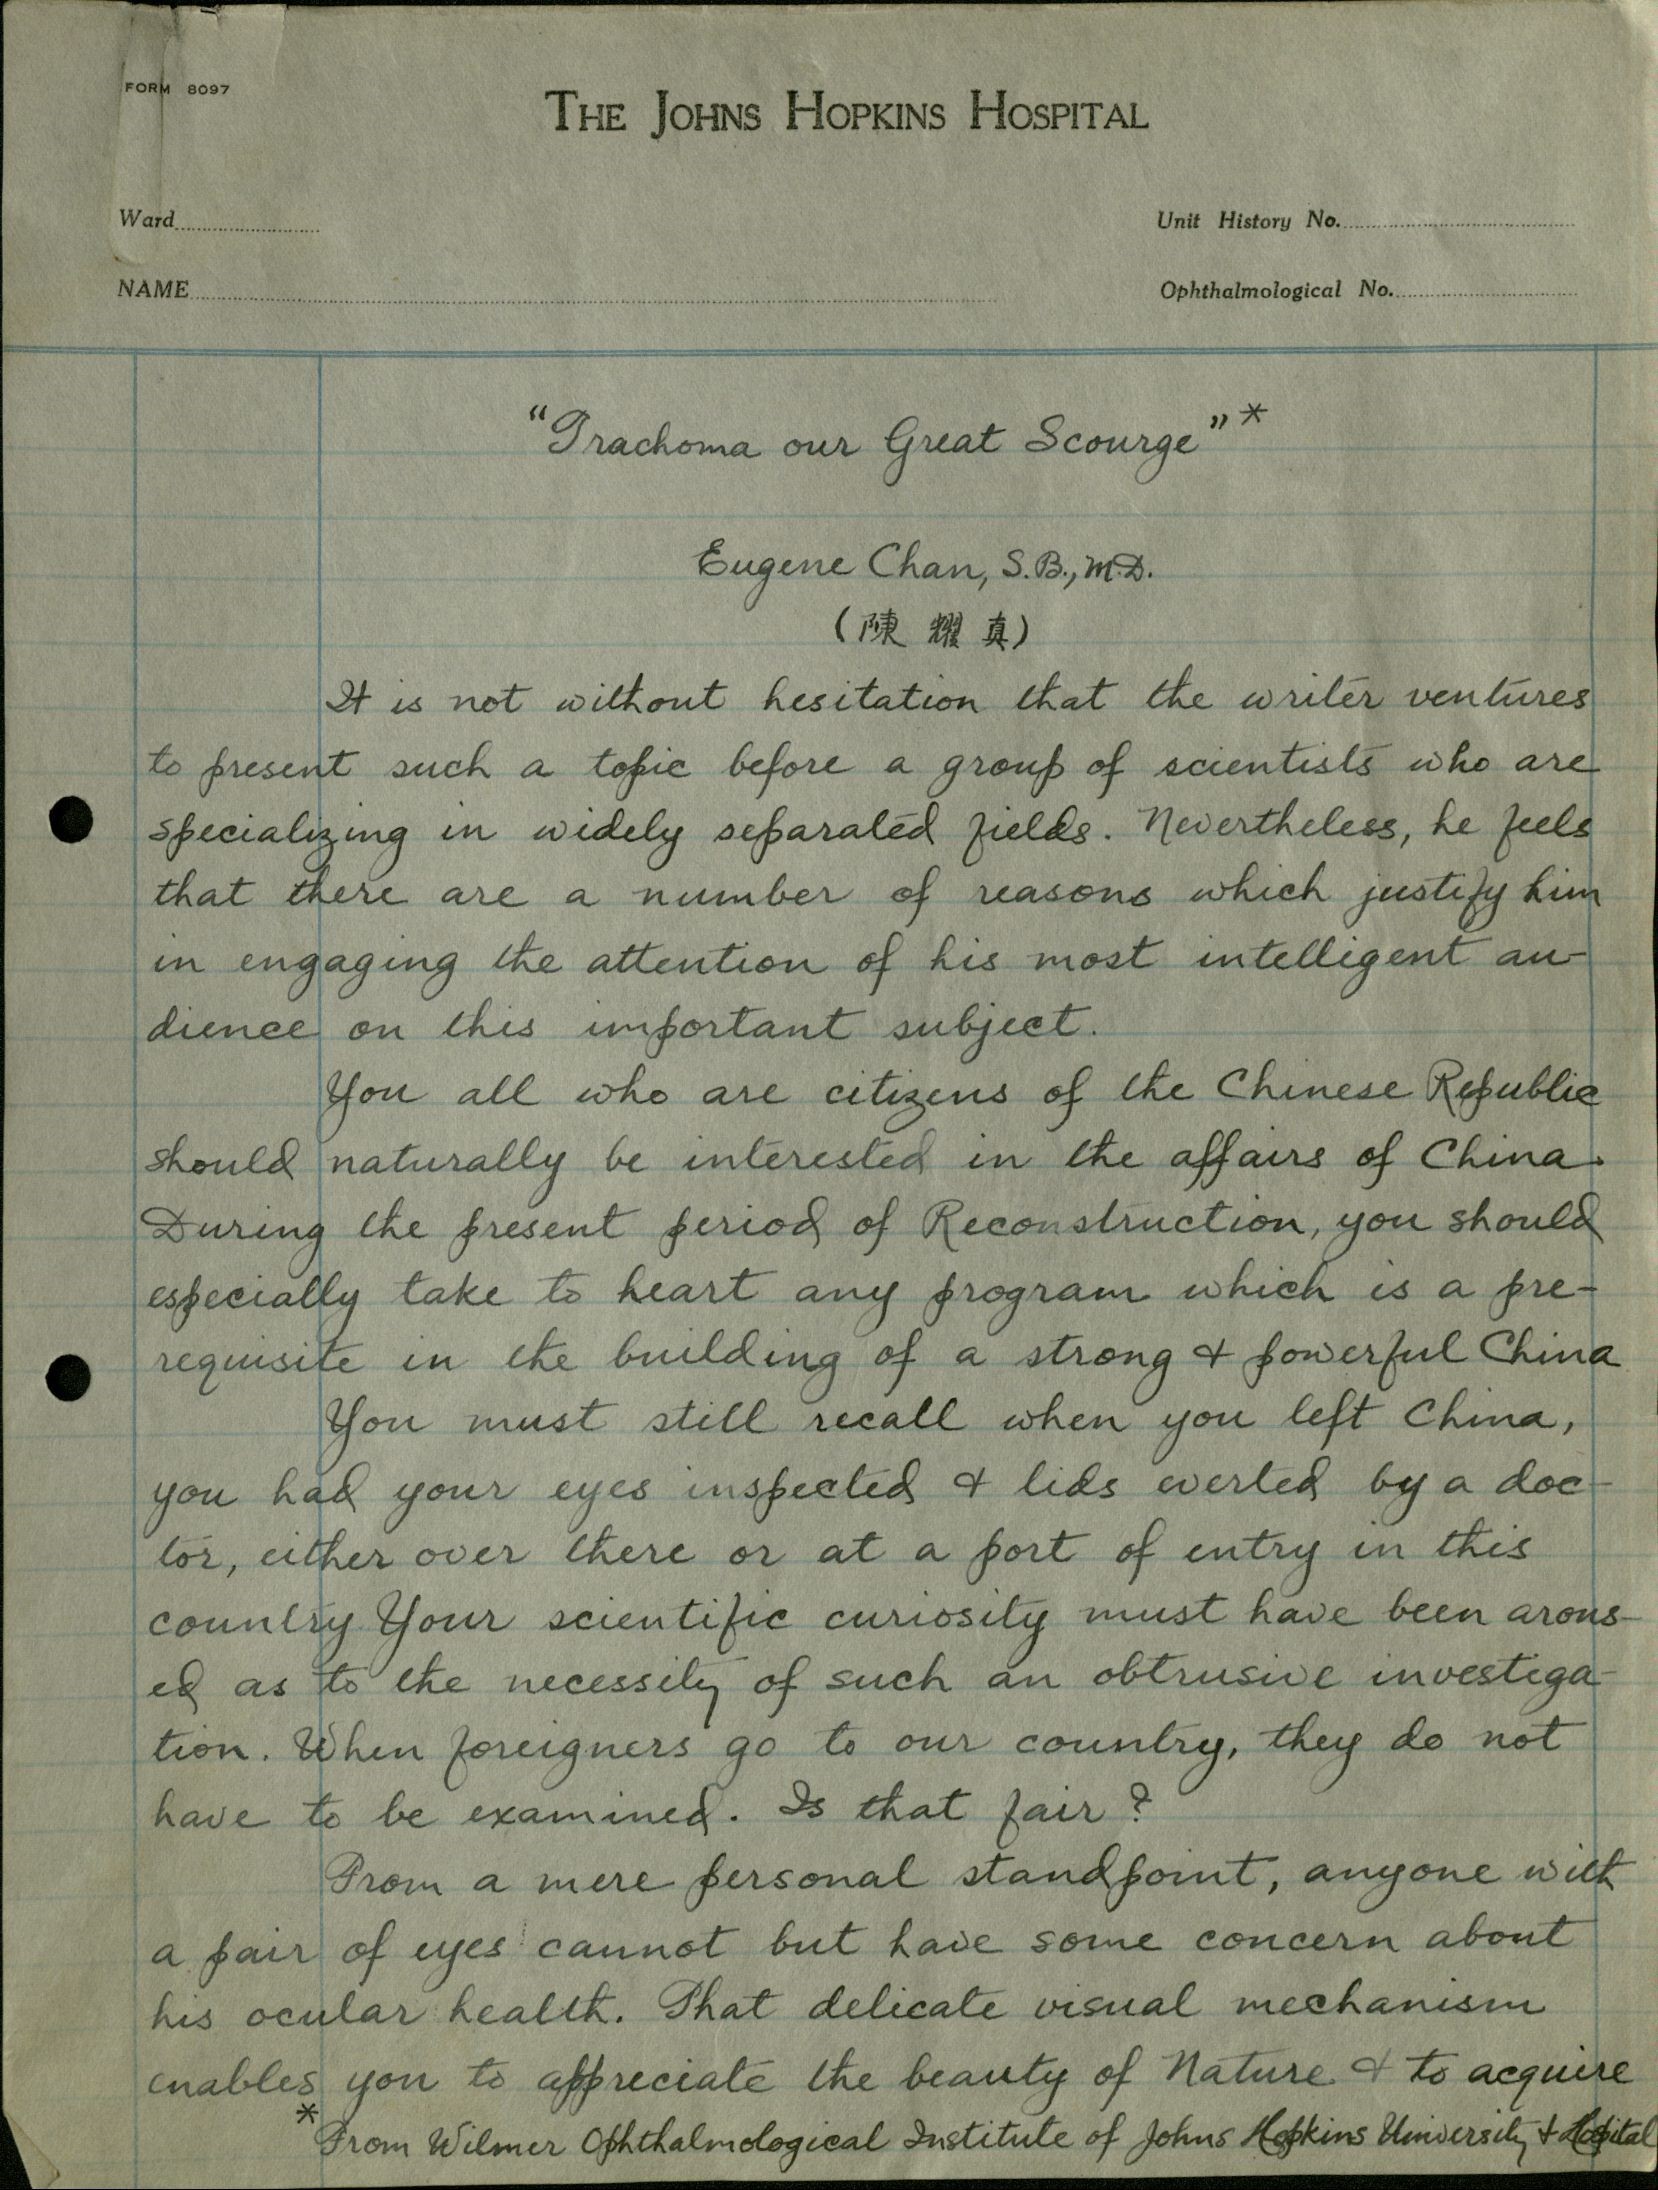 FORM 8097
THE JOHNS HOPKINS HOSPITAL
Ward
Unit History No.
NAME
Ophthalmological No.
"Trachoma our Great Scourge"*
Eugene Chan, S.B., M.D.
(陳 耀 真)
It is not without hesitation that the writer ventures
to present such a topic before a group of scientists who are
specializing in widely separated fields. Nevertheless, he feels
that there are a number of reasons which justify him
in engaging the attention of his most intelligent au-
dience on this important subject.
You all who are citizens of the Chinese Republic
should naturally be interested in the affairs of China.
During the present period of Reconstruction, you should
especially take to heart any program which is a pre-
requisite in the building of a strong & powerful China
You must still recall when you left China,
you had your eyes inspected & lids everted by a doc-
tor, either over there or at a port of entry in this
country Your scientific curiosity must have been arous-
ed as to the necessity of such an obtrusive investiga-
tion. When foreigners go to our country, they do not
have to be examined. Is that fair?
From a mere personal standpoint, anyone with
a pair of eyes cannot but have some concern about
his ocular health. That delicate visual mechanism
enables you to appreciate the beauty of Nature & to acquire
*From Wilmer Ophthalmological Institute of Johns Hopkins University & Hospital